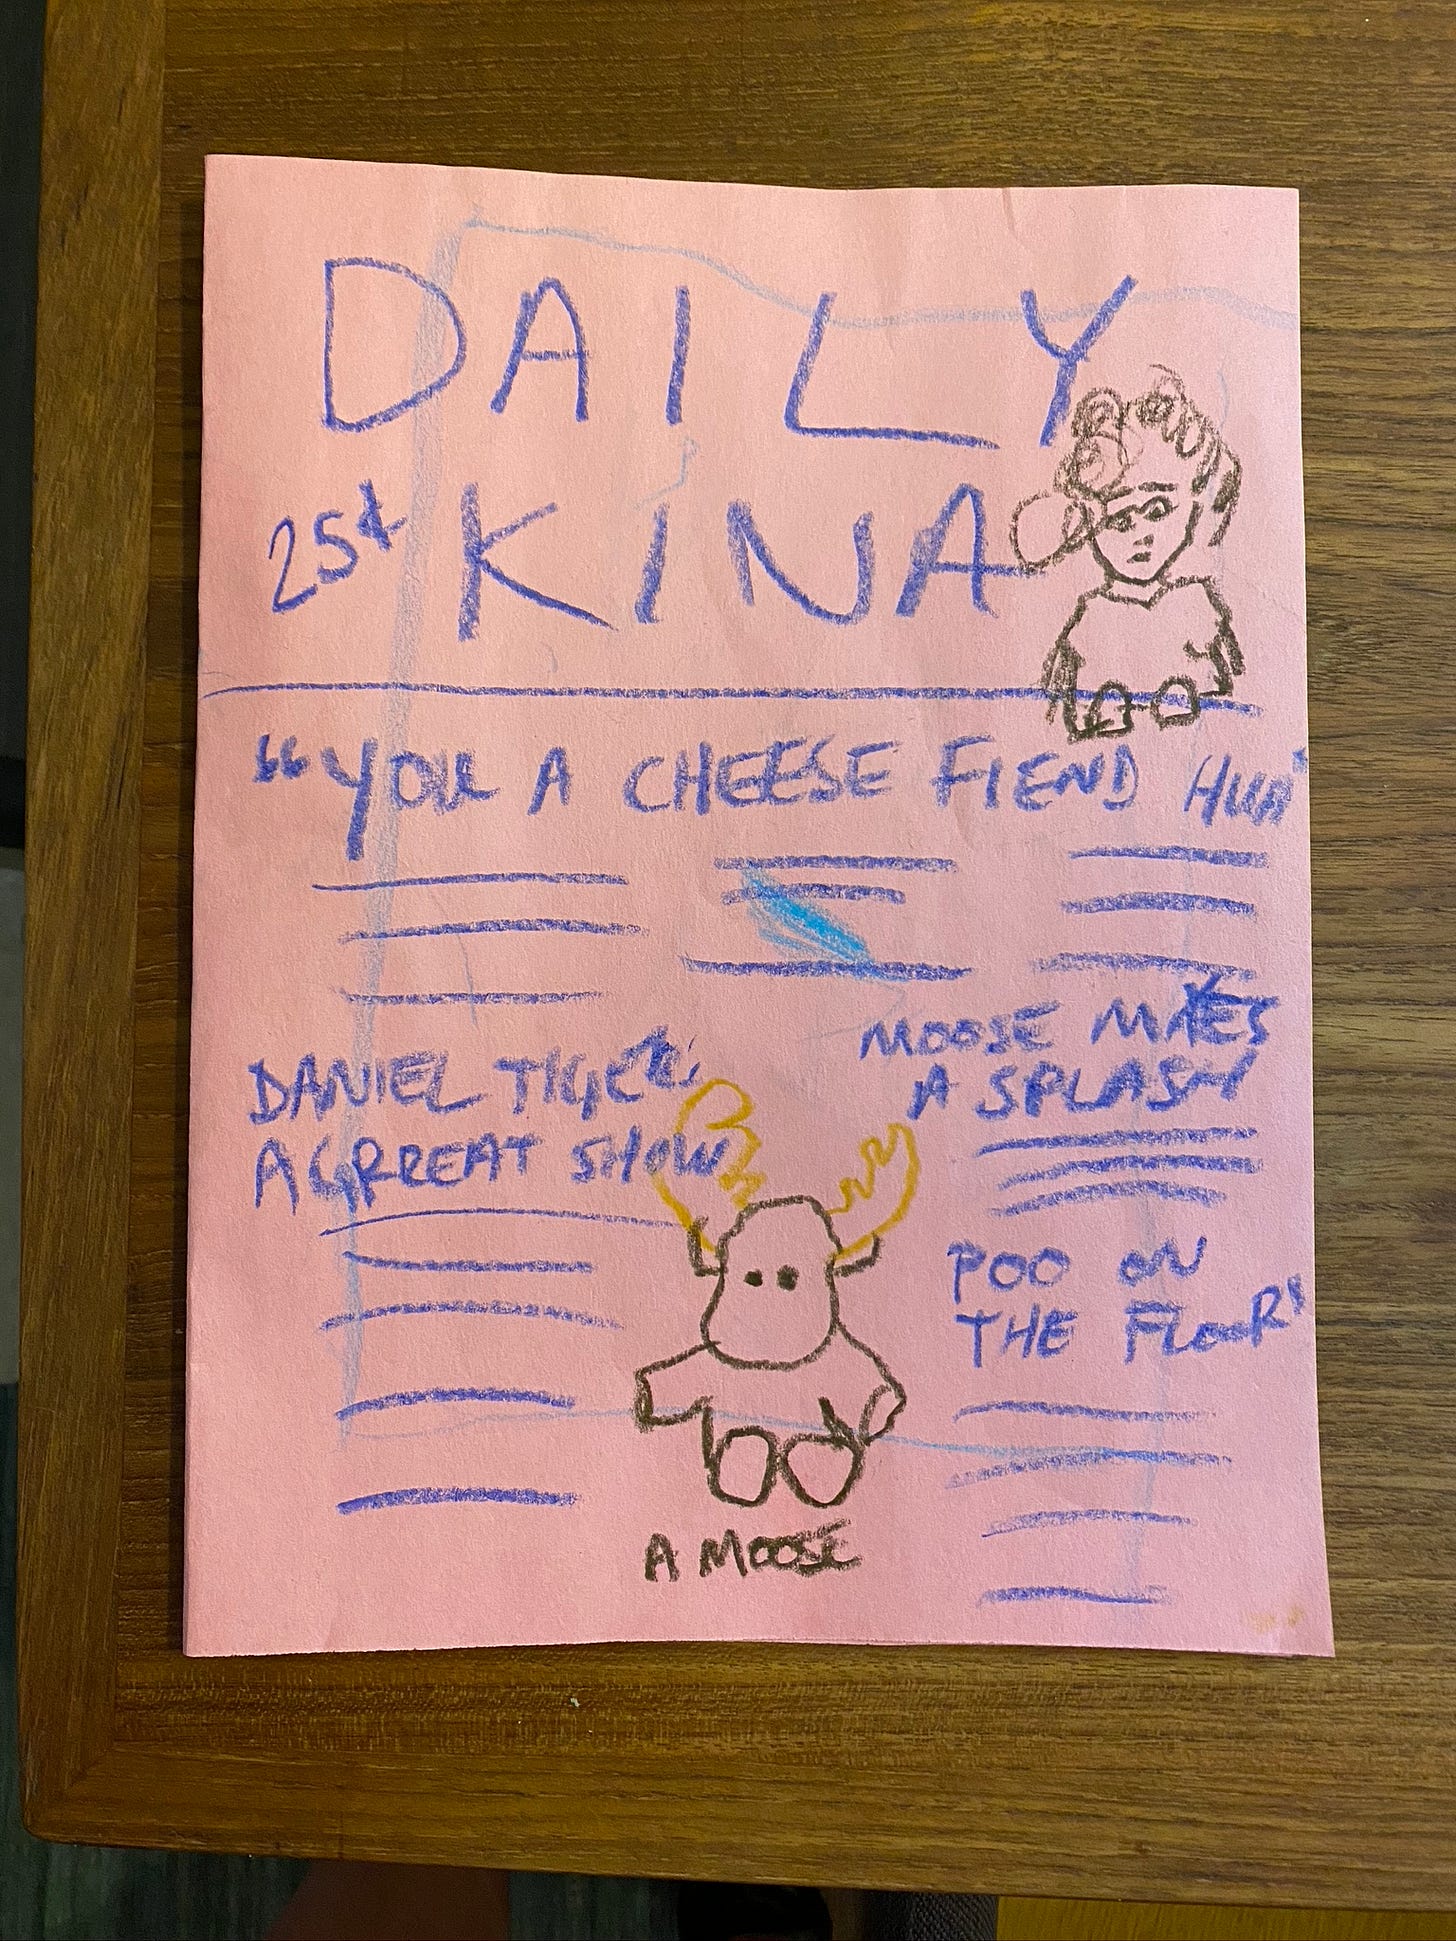 DAILY
25¢ KINA
"YOU A CHEESE FIEND HUH"
DANIEL TIGER:
A GRREAT SHOW
MOOSE MAKES
A SPLASH
POO ON
THE FLOOR!
A MOOSE